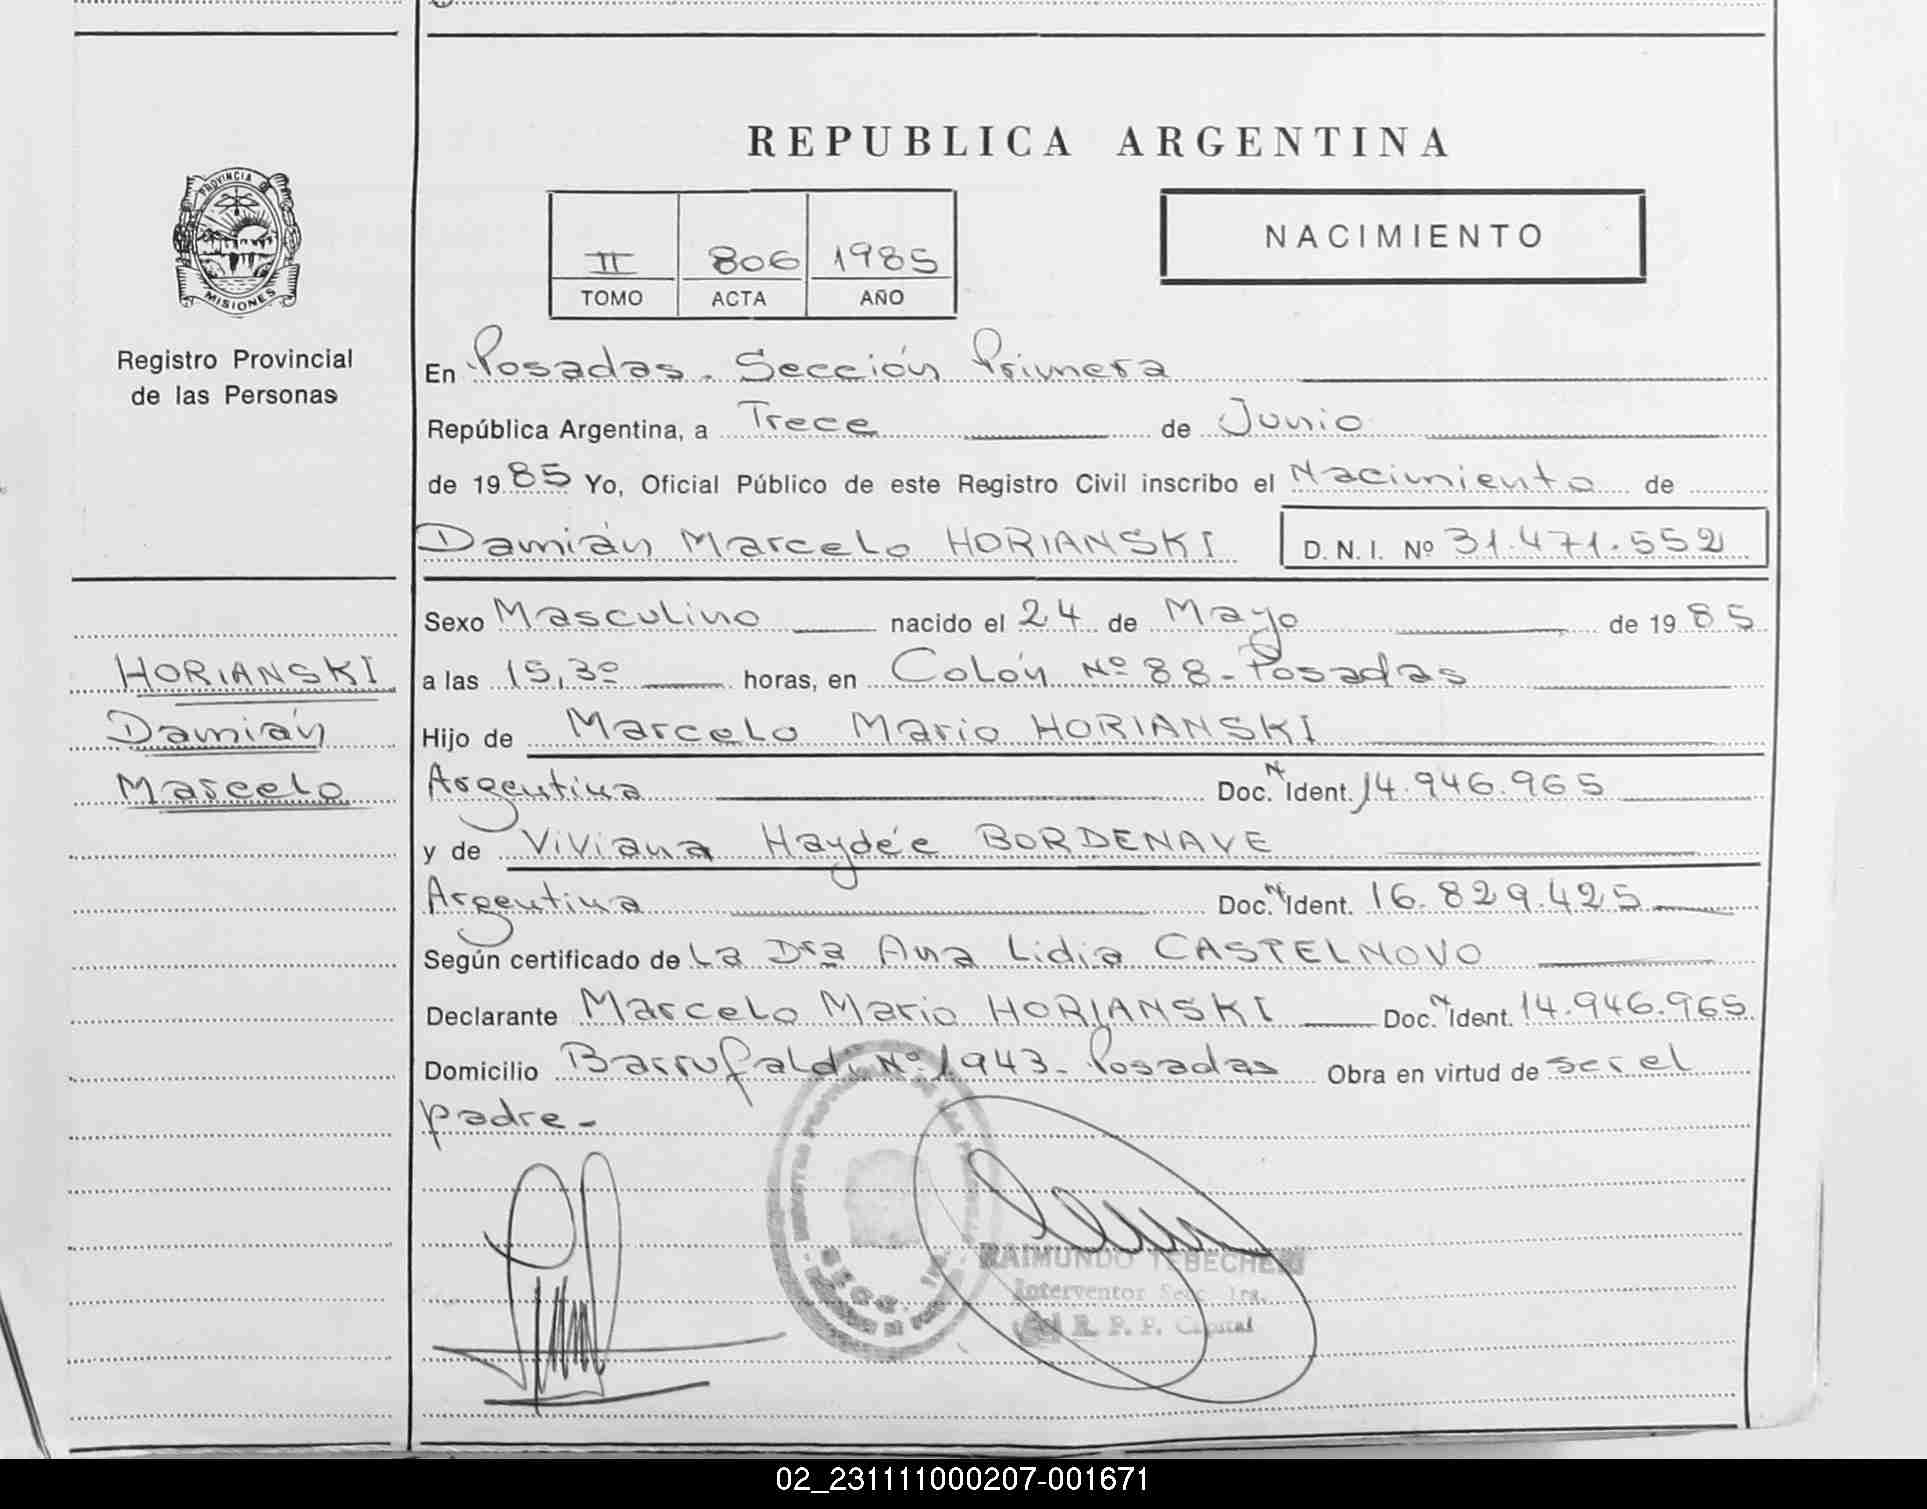 REPUBLICA ARGENTINA
PROVINCIA D
MISIONES
Registro Provincial
de las Personas
II 806 1985
TOMO ACTA AÑO
NACIMIENTO
En Posadas. Sección Primera
República Argentina, a Trece de Junio
de 1985 Yo, Oficial Público de este Registro Civil inscribo el Nacimiento de
Damián Marcelo HORIANSKI D.N.I. Nº 31.471.552
HORIANSKI
Damián
Marcelo
Sexo Masculino nacido el 24 de Mayo de 1985
a las 15,30 horas, en Colón Nº 88 - Posadas
Hijo de Marcelo Mario HORIANSKI
Argentina Doc. N Ident. 14.946.965
y de Viviana Haydée BORDENAVE
Argentina Doc. N Ident. 16.829.425
Según certificado de La Dra Ana Lidia CASTELNOVO
Declarante Marcelo Mario HORIANSKI Doc. N Ident. 14.946.965
Domicilio Barrufaldi Nº 1943 - Posadas Obra en virtud de ser el
padre -
RAIMUNDO
Interventor Secc. 1ra.
R. P. P. Capital
02_231111000207-001671